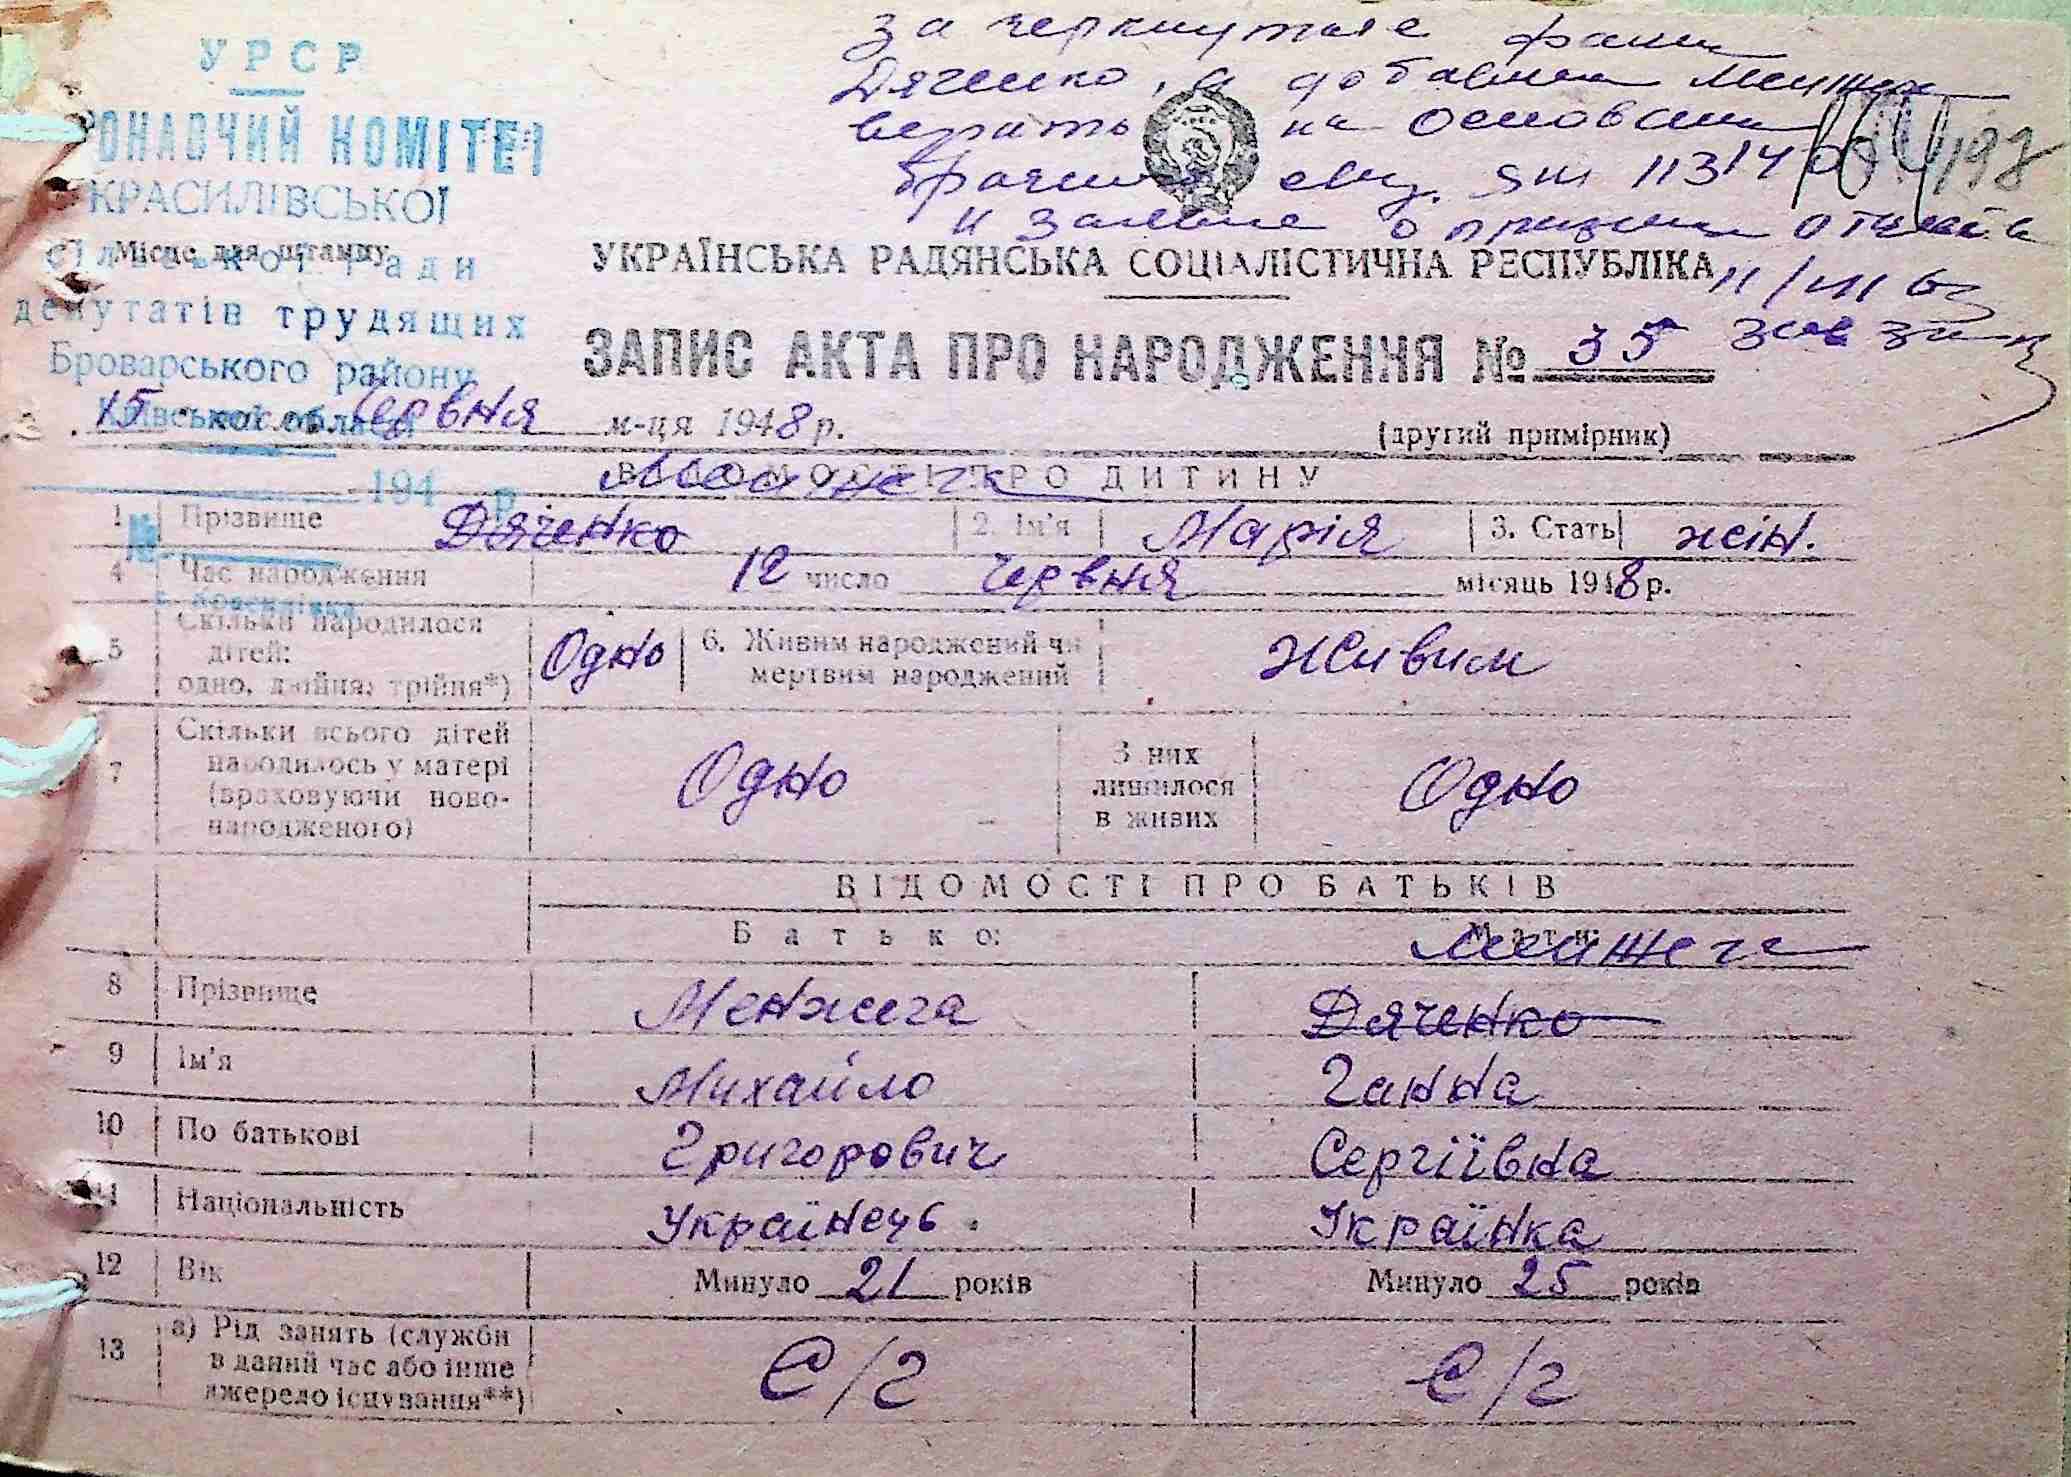 УРСР
ОНАВЧИЙ КОМІТЕТ
КРАСИЛІВСЬКОЇ
сільської ради
Місце для штампу
депутатів трудящих
Броварського району
Київської області
194 р.
№
с. Красилівка
зачеркнутяе
Дяченко, а добавлен
верить на основании
брачн. свид. 113140
и о признании отцовства
164
197
УКРАЇНСЬКА РАДЯНСЬКА СОЦІАЛІСТИЧНА РЕСПУБЛІКА
ЗАПИС АКТА ПРО НАРОДЖЕННЯ № 35
15 червня м-ця 1948 р.
(другий примірник)
ВІДОМОСТІ ПРО ДИТИНУ
1 Прізвище Дяченко 2. Ім'я Марія 3. Стать жін.
4 Час народження 12 число червня місяць 1948 р.
5 Скільки народилося дітей: одно, двійня, трійня*) Одно 6. Живим народжений чи мертвим народжений Живим
7 Скільки всього дітей народилось у матері (враховуючи ново-народженого) Одно З них лишилося в живих Одно
ВІДОМОСТІ ПРО БАТЬКІВ
Батько: Мати:
Менжега
8 Прізвище Менжега Дяченко
9 Ім'я Михайло Ганна
10 По батькові Григорович Сергіївна
11 Національність Українець Українка
12 Вік Минуло 21 років Минуло 25 років
13 а) Рід занять (служби в даний час або інше джерело існування**) С/г С/г